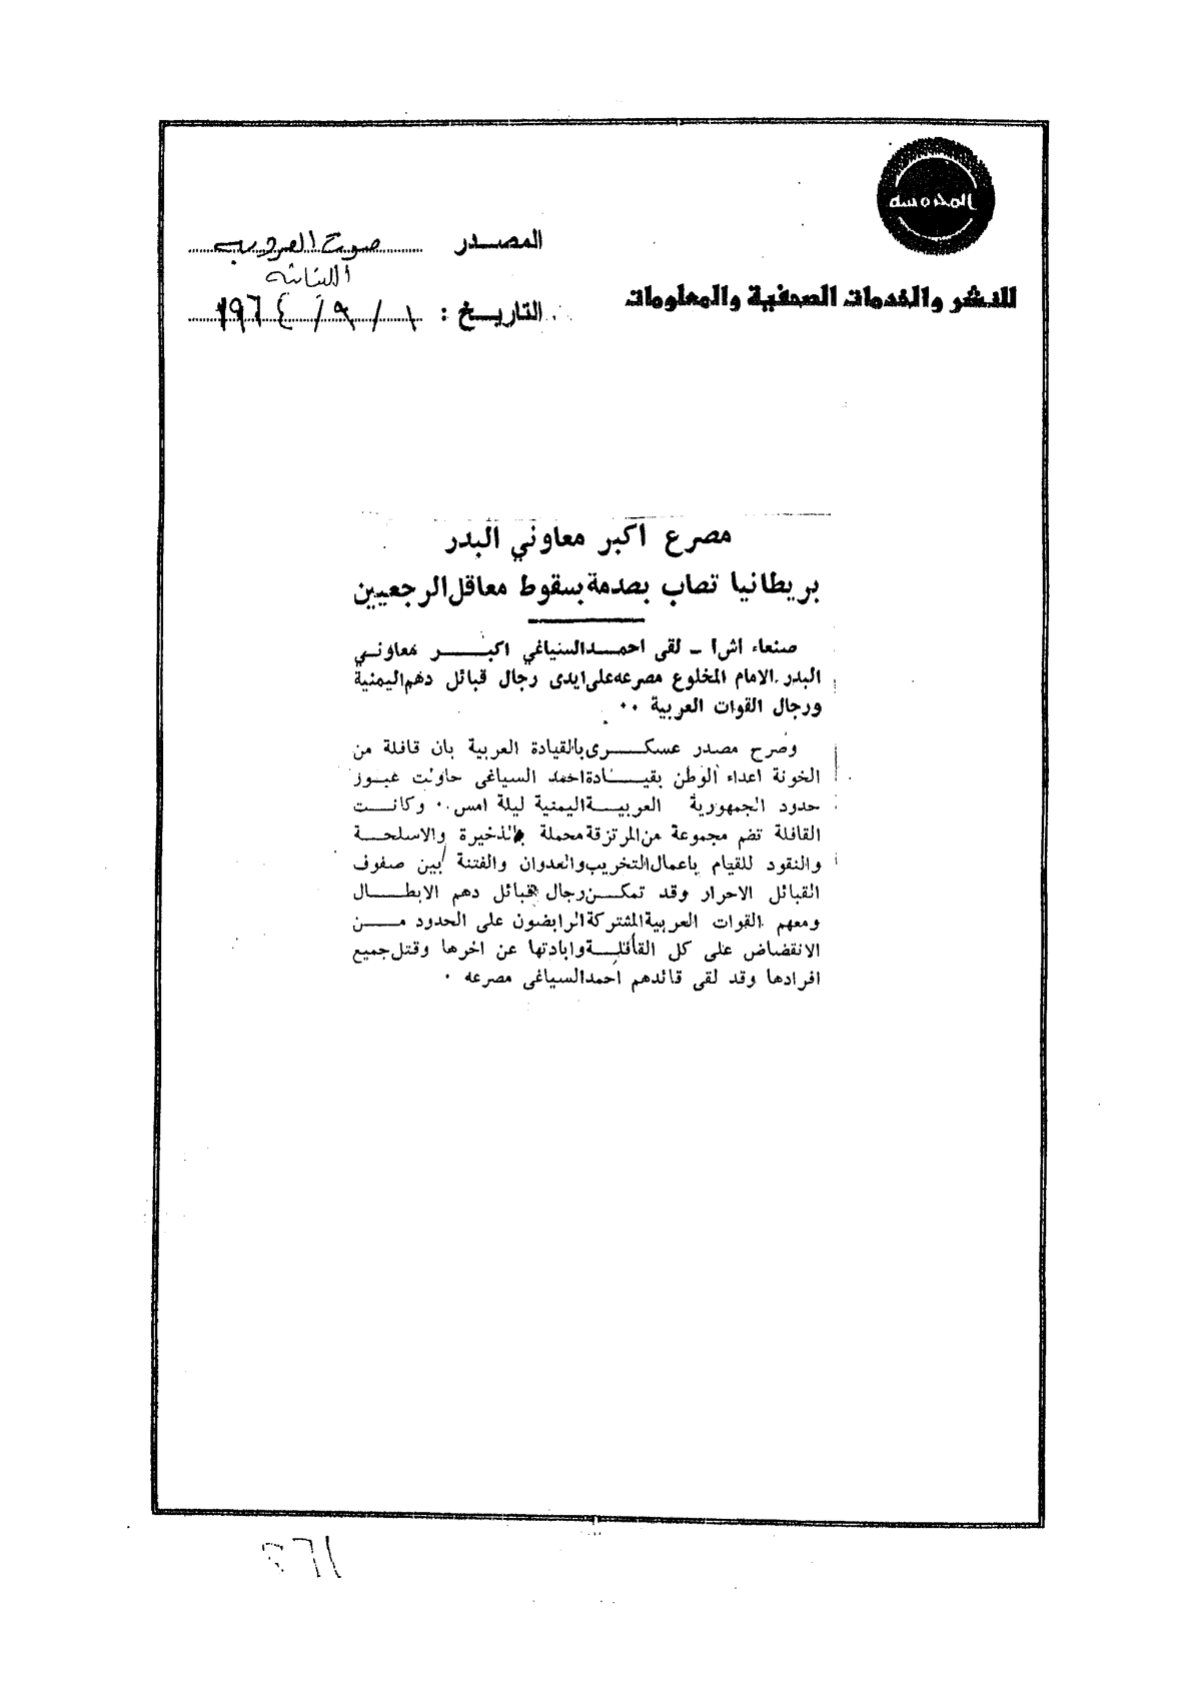 المحروسة
للنشر والخدمات الصحفية والمعلومات
المصدر صوت العروبه
اللبنانيه
التاريخ : ١ / ٩ / ١٩٦٤
مصرع اكبر معاوني البدر
بريطانيا تصاب بصدمة بسقوط معاقل الرجعيين
صنعاء اشا - لقى احمد السياغي اكبر معاوني
البدر الامام المخلوع مصرعه على ايدى رجال قبائل دهم اليمنية
ورجال القوات العربية ..
وصرح مصدر عسكرى بالقيادة العربية بان قافلة من
الخونة اعداء الوطن بقيادة احمد السياغى حاولت عبور
حدود الجمهورية العربية اليمنية ليلة امس . وكانت
القافلة تضم مجموعة من المرتزقة محملة بالذخيرة والاسلحة
والنقود للقيام باعمال التخريب والعدوان والفتنة بين صفوف
القبائل الاحرار وقد تمكن رجال قبائل دهم الابطال
ومعهم القوات العربية المشتركة الرابضون على الحدود من
الانقضاض على كل القافلة وابادتها عن اخرها وقتل جميع
افرادها وقد لقى قائدهم احمد السياغى مصرعه .